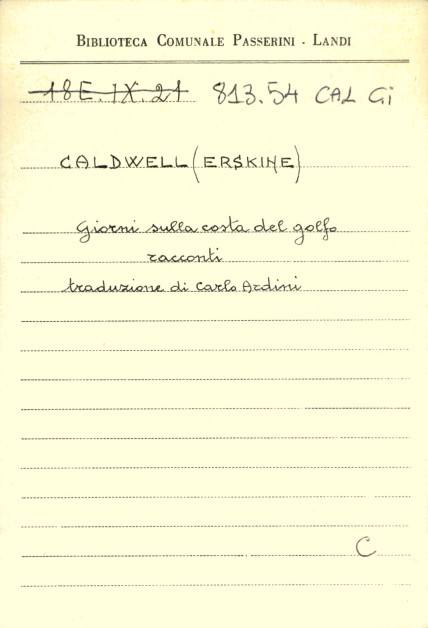 BIBLIOTECA COMUNALE PASSERINI - LANDI
18E.IX.21 813.54 CAL Gi
CALDWELL (ERSKINE)
Giorni sulla costa del golfo
racconti
traduzione di Carlo Ardini
C